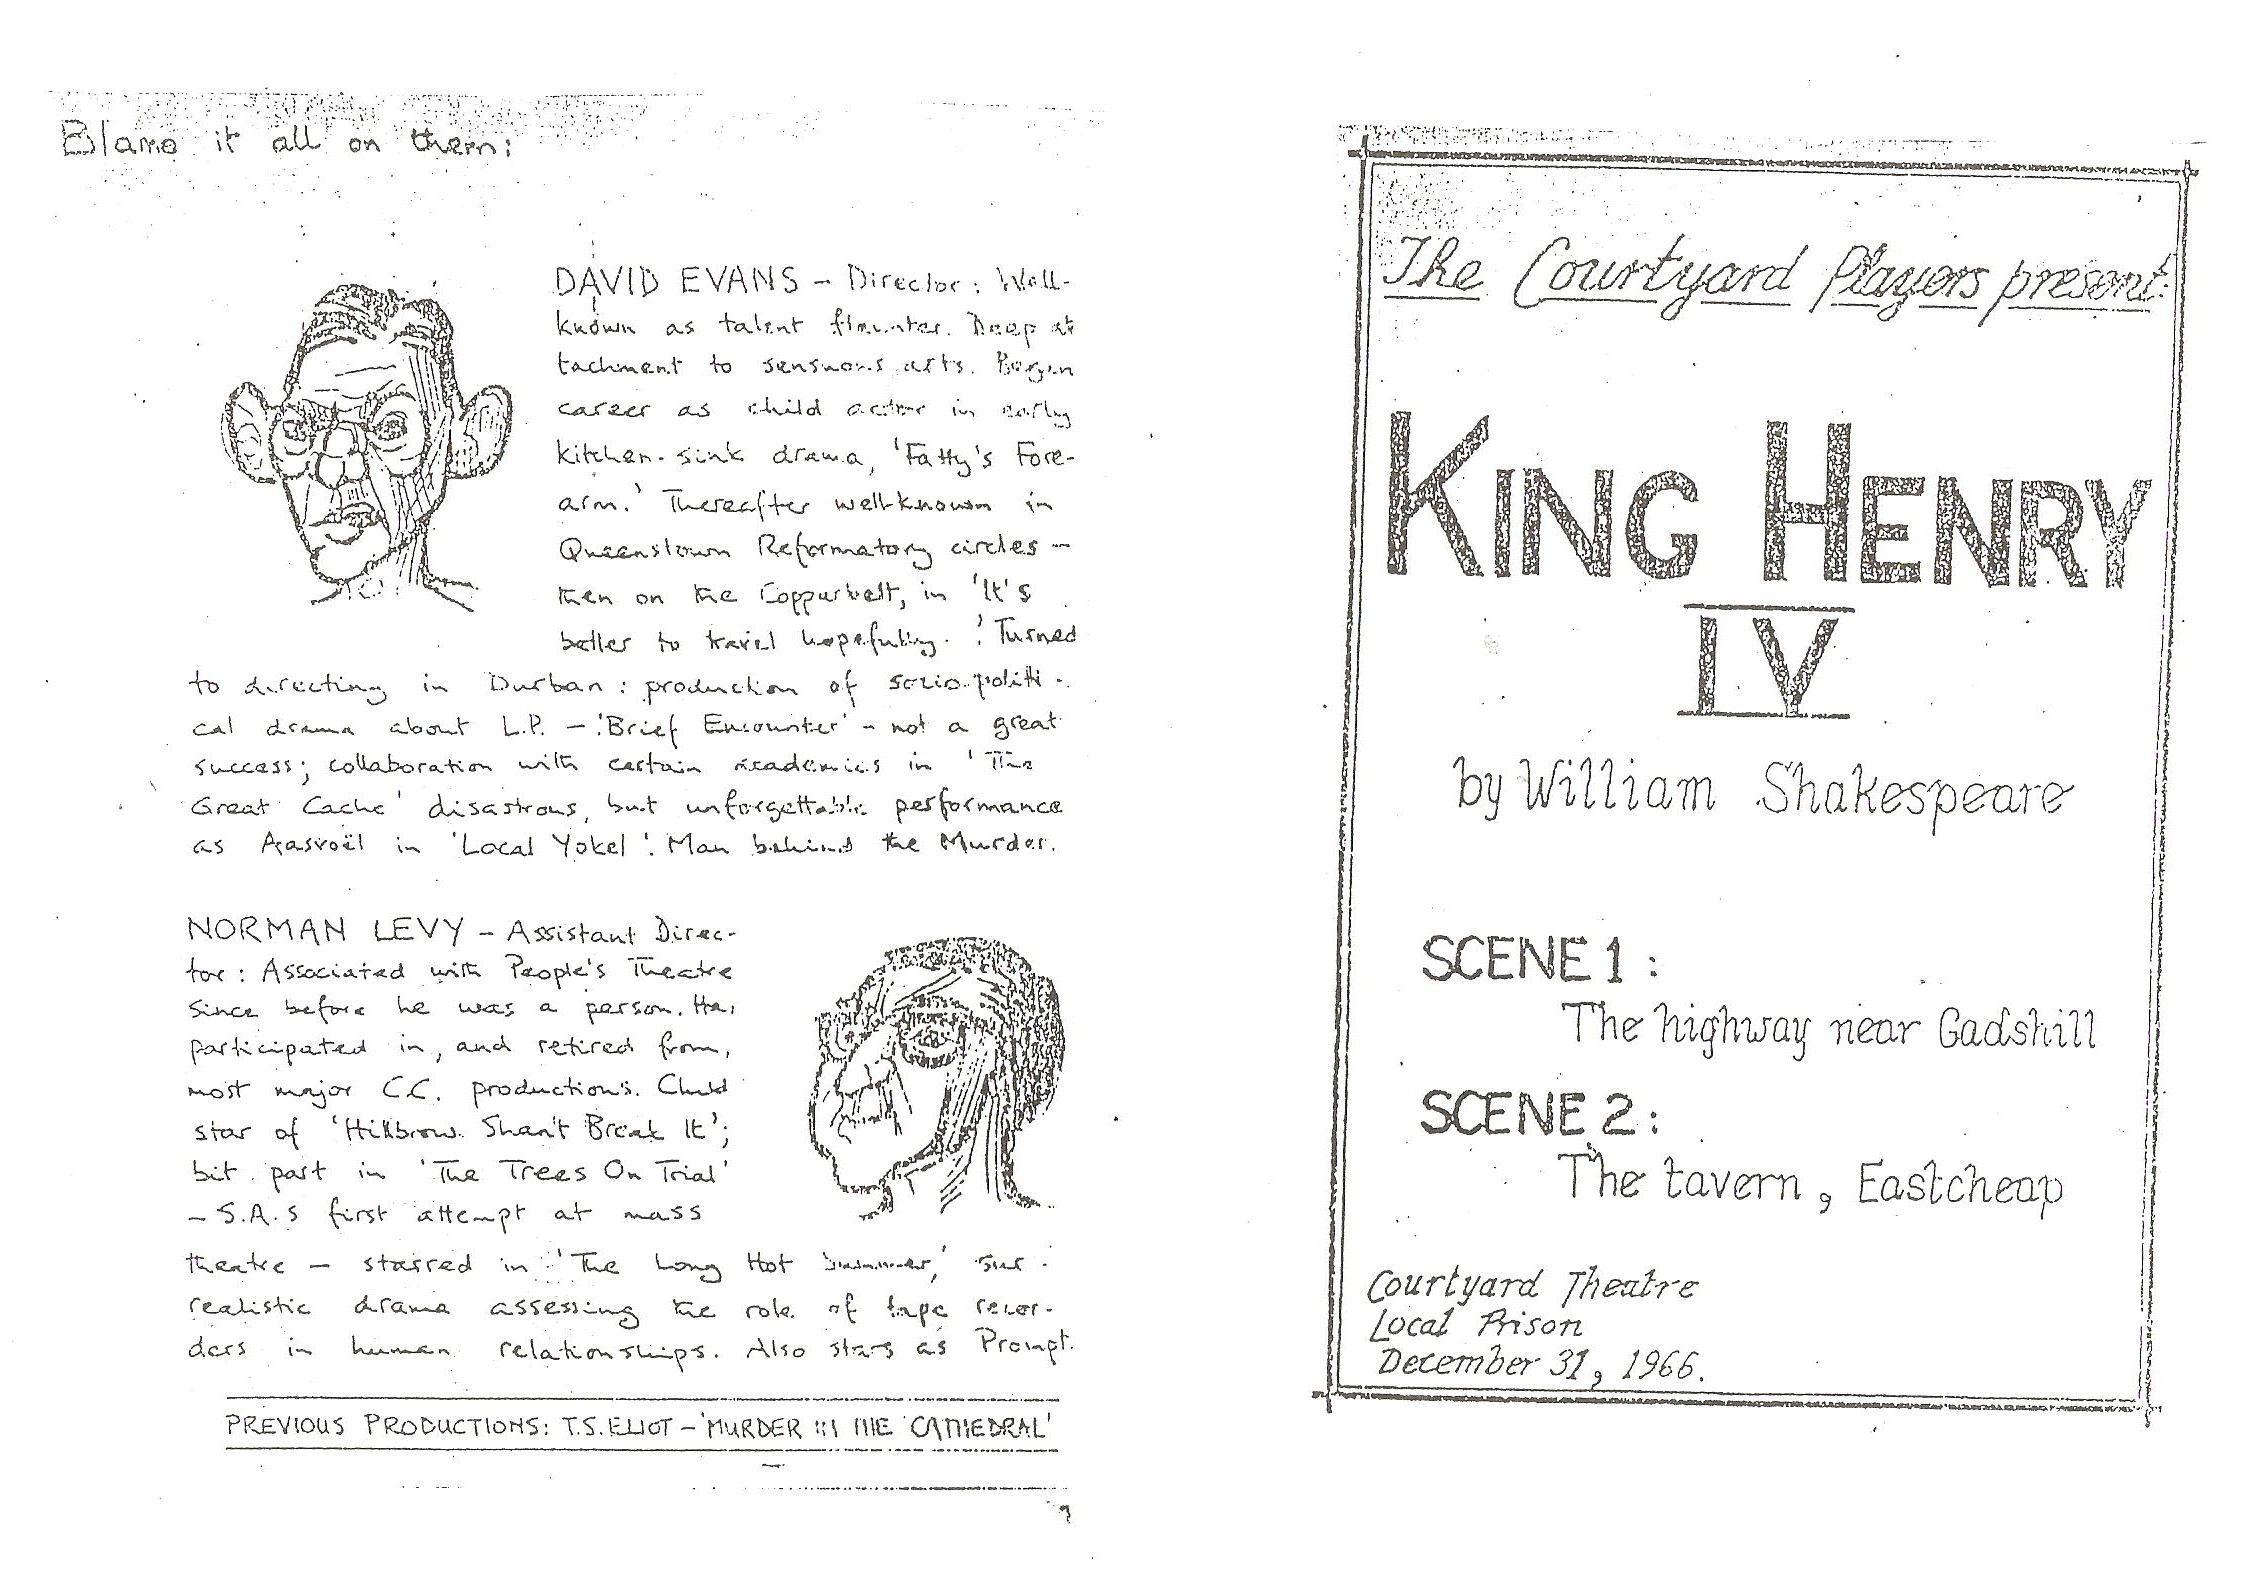 Blame it all on them:
DAVID EVANS – Director: Well-
known as talent flaunter. Deep at
tachment to sensuous arts. Began
career as child actor in early
kitchen-sink drama, 'Fatty's Fore-
arm.' Thereafter well-known in
Queenstown Reformatory circles –
then on the Copperbelt, in 'It's
better to travel hopefully.' Turned
to directing in Durban: production of socio-politi-
cal drama about L.P. – 'Brief Encounter' – not a great
success; collaboration with certain academics in 'The
Great Cache' disastrous, but unforgettable performance
as Aasvoël in 'Local Yokel'. Man behind the Murder.
NORMAN LEVY – Assistant Direc-
tor: Associated with People's Theatre
since before he was a person. Has
participated in, and retired from,
most major C.C. productions. Child
star of 'Hillbrow Shan't Break It';
bit part in 'The Trees On Trial'
– S.A.s first attempt at mass
theatre – starred in 'The Long Hot Summer,' sur-
realistic drama assessing the role of tape recor-
ders in human relationships. Also stars as Prompt.
PREVIOUS PRODUCTIONS: T.S. ELIOT – 'MURDER IN THE CATHEDRAL'
The Courtyard Players present:
KING HENRY
IV
by William Shakespeare
SCENE 1:
The highway near Gadshill
SCENE 2:
The tavern, Eastcheap
Courtyard Theatre
Local Prison
December 31, 1966.